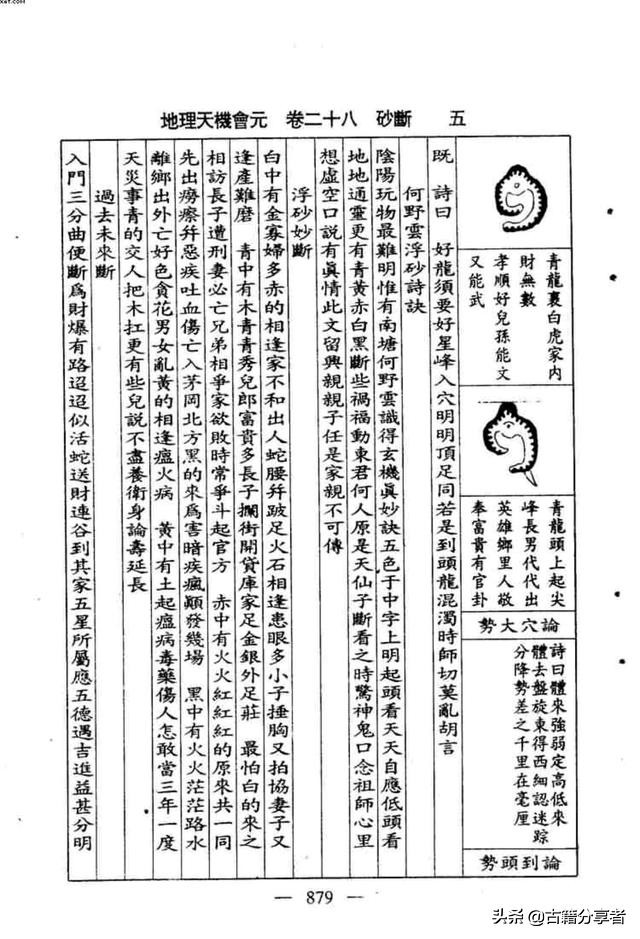 xet.com
地理天機會元　卷二十八　砂斷　五
青龍裏白虎家內
財無數
孝順好兒孫能文
又能武
青龍頭上起尖
峰長男代代出
英雄鄉里人敬
奉富貴有官卦
論穴大勢
詩曰體來強弱定高低來
體去盤旋東得西細認迷踪
分降勢差之千里在毫厘
論到頭勢
既　詩曰　好龍須要好星峰入穴明明頂足同若是到頭龍混濁時師切莫亂胡言
何野雲浮砂詩訣
陰陽玩物最難明惟有南塘何野雲識得玄機眞妙訣五色于中字上明起頭看天天自應低頭看
地地通靈更有青黃赤白黑斷些禍福動東君何人原是天仙子斷看之時驚神鬼口念祖師心里
想虛空口說有眞情此文留與親親子任是家親不可傳
浮砂妙斷
白中有金寡婦多赤的相逢家不和出人蛇腰幷跛足火石相逢患眼多小子捶胸又拍協妻子又
逢產難磨　青中有木青青秀兒郎富貴多長子攔街開貸庫家足金銀外足莊　最怕白的來之
相訪長子遭刑妻必亡兄弟相爭家欲敗時常爭斗起官方　赤中有火火紅紅紅的原來共一同
先出癆瘵幷惡疾吐血傷亡入茅岡北方黑的來爲害暗疾瘋顛發幾場　黑中有火火茫茫路水
離鄉出外亡好色貪花男女亂黃的相逢瘟火病　黃中有土起瘟病毒藥傷人怎敢當三年一度
天災事青的交人把木扛更有些兒說不盡養衛身論壽延長
過去未來斷
入門三分曲便斷爲財爆有路迢迢似活蛇送財連谷到其家五星所屬應五德遇吉進益甚分明
— 879 —
头条 @古籍分享者